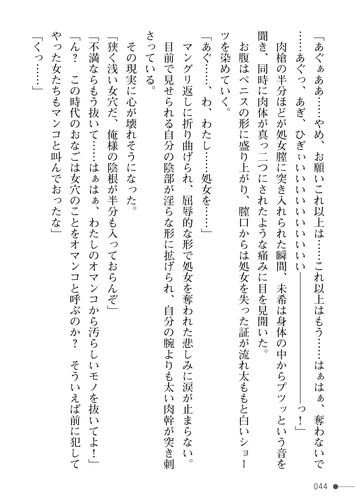 「あぐぁああ……やめ、お願いこれ以上は……これ以上はもう……はぁはぁ、奪わないで
……あぐっ、あぎ、ひぎぃぃいいいいいいいいいいいい────────っ！」
肉槍の半分ほどが処女膣に突き入れられた瞬間、未希は身体の中からプツッという音を
聞き、同時に肉体が真っ二つにされたような痛みに目を見開いた。
お腹はペニスの形に盛り上がり、膣口からは処女を失った証が流れ太ももと白いショー
ツを染めていく。
「あぐ……、わ、わたし……処女を……」
マングリ返しに折り曲げられ、屈辱的な形で処女を奪われた悲しみに涙が止まらない。
目前で見せられる自分の陰部が淫らな形に拡げられ、自分の腕よりも太い肉幹が突き刺
さっている。
その現実に心が壊れそうになった。
「狭く浅い女穴だ、俺様の陰根が半分も入っておらんぞ」
「不満ならもう抜いて……はぁはぁ、わたしのオマンコから汚らしいモノを抜いてよ！」
「ん？　この時代のおなごは女穴のことをオマンコと呼ぶのか？　そういえば前に犯して
やった女たちもマンコと叫んでおったな」
「くっ……」
044